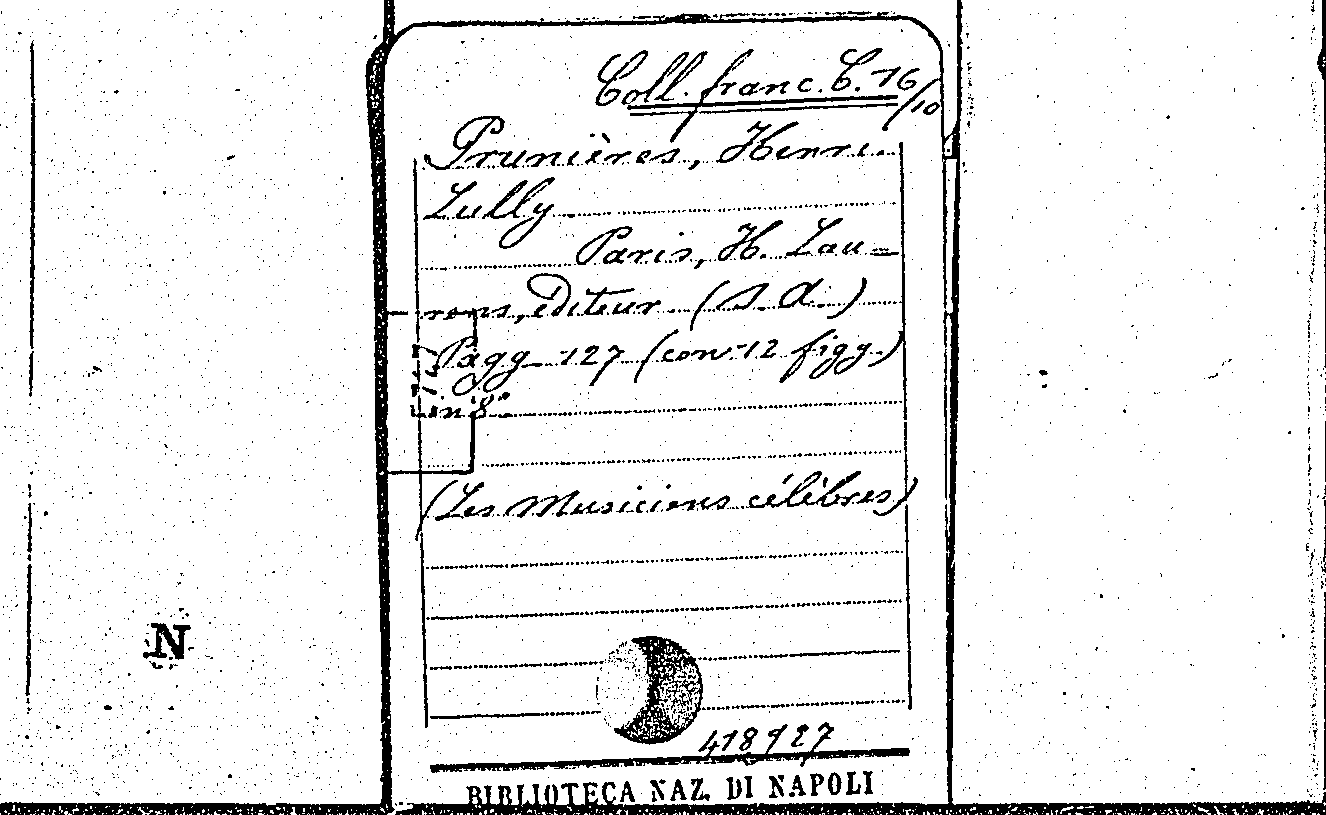 Coll. franc. C. 16/10
Prunières, Henri.
Lully
Paris, H. Lau=
rens, éditeur (s. d.)
Pagg. 127 (con 12 figg.)
in 8°
(Les Musiciens célèbres)
N
418927
BIBLIOTECA NAZ. DI NAPOLI